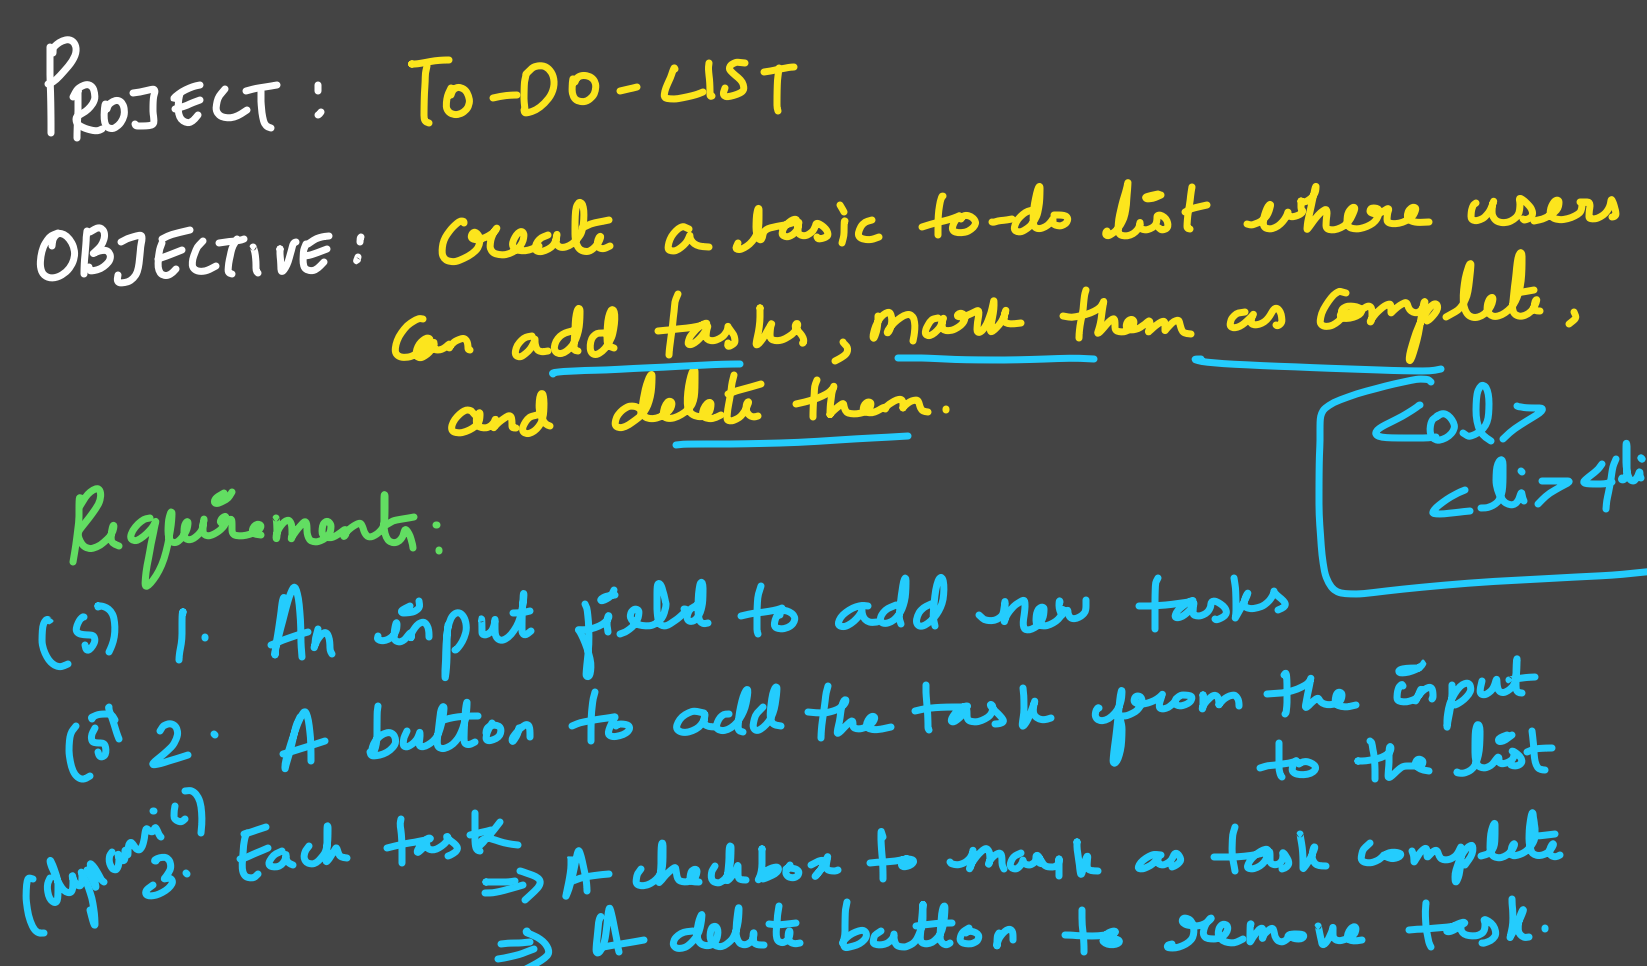 PROJECT: TO-DO-LIST
OBJECTIVE: Create a basic to-do list where users
can add tasks, mark them as complete,
and delete them.
<ol>
<li></li
Requirements:
(S) 1. An input field to add new tasks
(S) 2. A button to add the task from the input
to the list
(dynamic) 3. Each task
⇒ A checkbox to mark as task complete
⇒ A delete button to remove task.